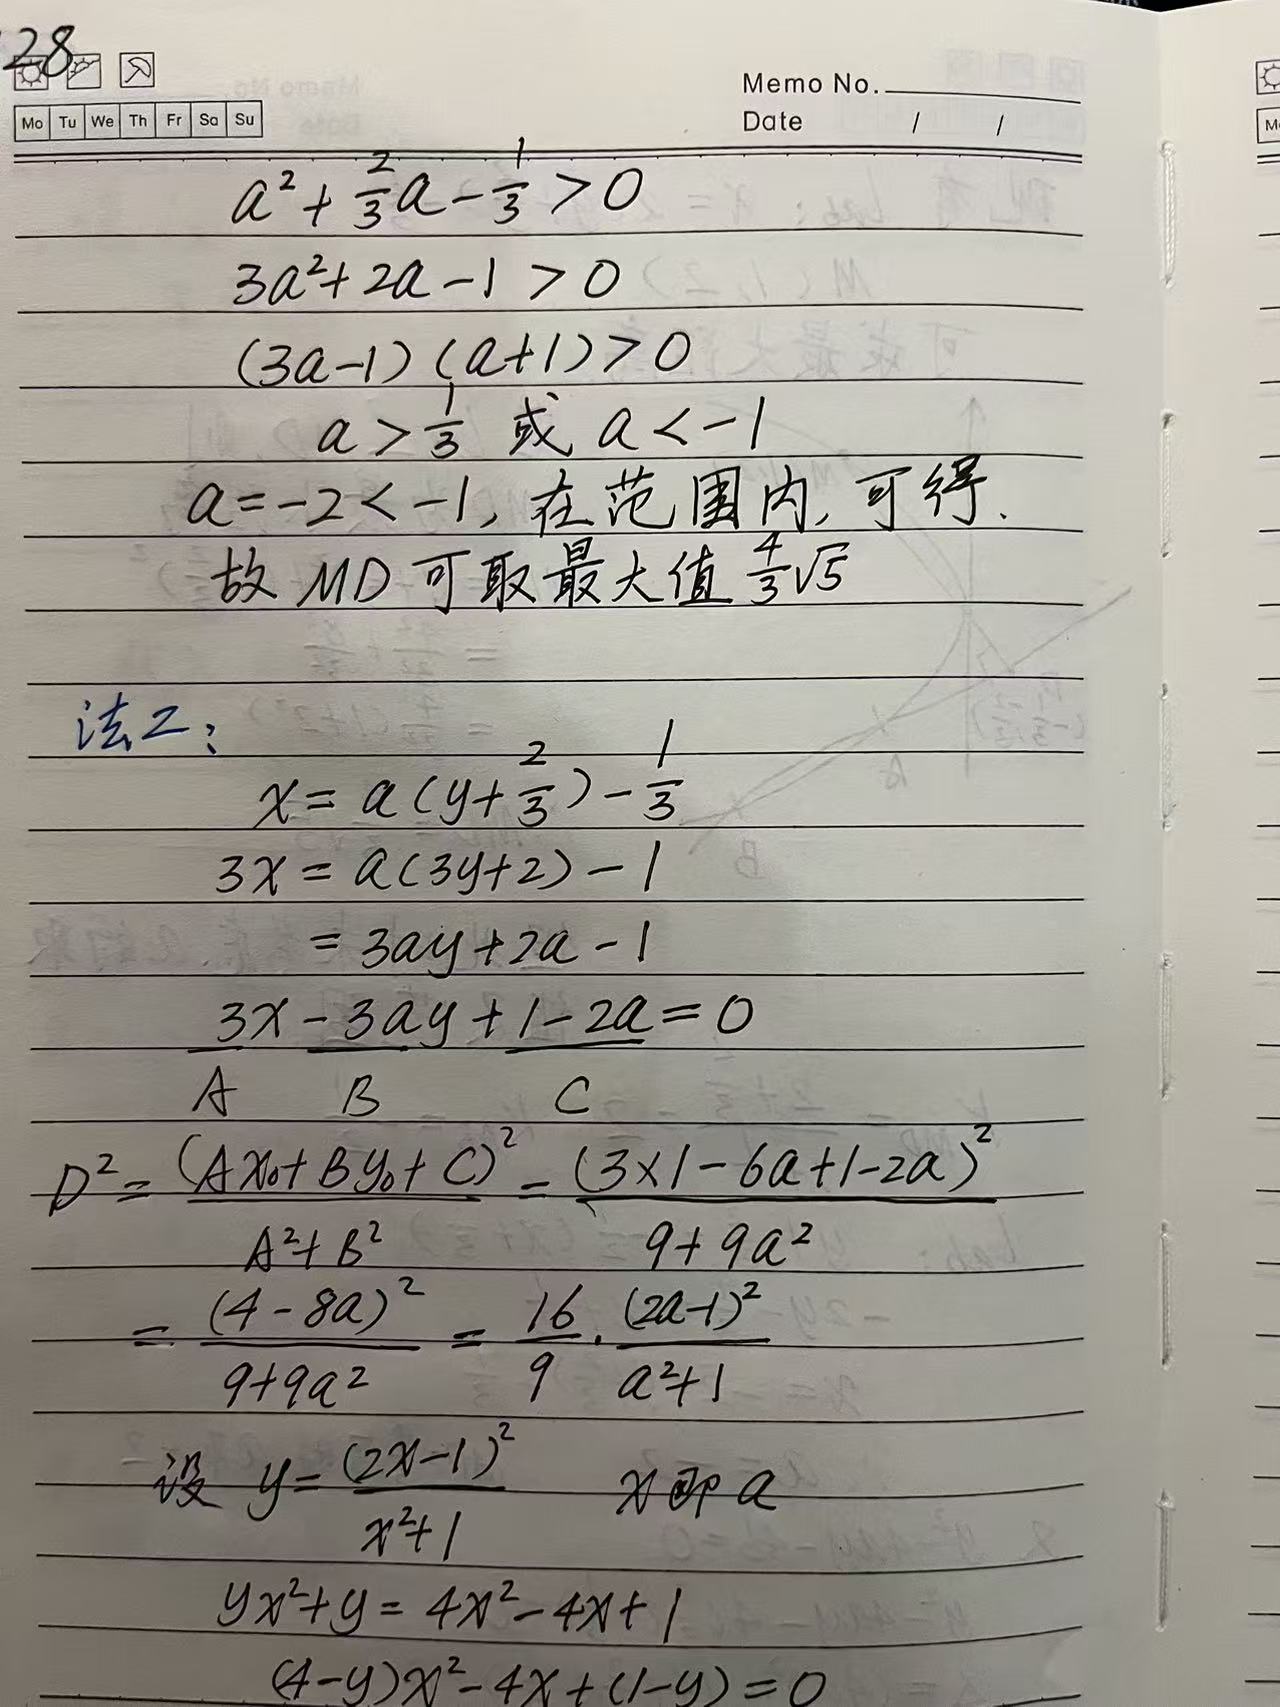 28
Mo Tu We Th Fr Sa Su
Memo No.
Date / /
a² + 2/3 a - 1/3 > 0
3a² + 2a - 1 > 0
(3a-1)(a+1) > 0
a > 1/3 或 a < -1
a = -2 < -1, 在范围内, 可得.
故 MD 可取最大值 4/3 √5
法2:
x = a(y + 2/3) - 1/3
3x = a(3y+2) - 1
= 3ay + 2a - 1
3x - 3ay + 1 - 2a = 0
A B C
D² = (Ax₀ + By₀ + C)² / (A² + B²) = (3×1 - 6a + 1 - 2a)² / (9 + 9a²)
= (4 - 8a)² / (9 + 9a²) = 16/9 · (2a-1)² / (a² + 1)
设 y = (2x-1)² / (x² + 1) x 即 a
yx² + y = 4x² - 4x + 1
(4-y)x² - 4x + (1-y) = 0